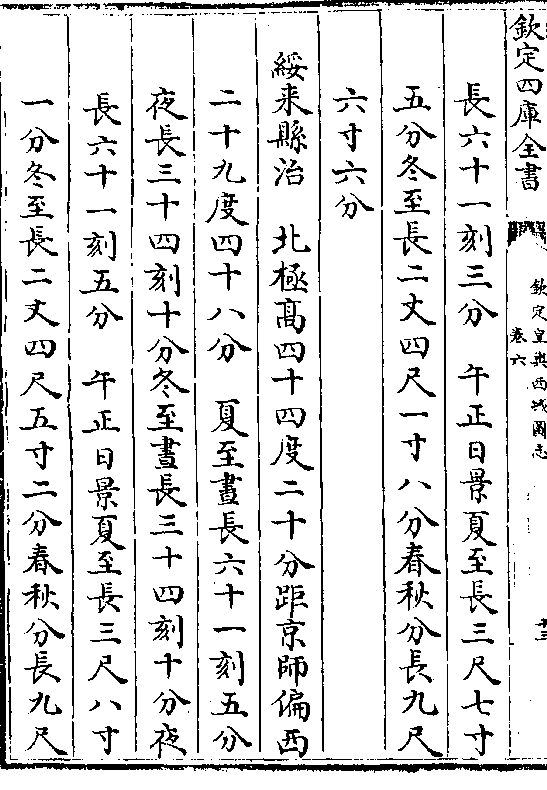 欽定四庫全書
欽定皇輿西域圖志
卷六
十三
長六十一刻三分　午正日景夏至長三尺七寸
五分冬至長二丈四尺一寸八分春秋分長九尺
六寸六分
綏来縣治　北極髙四十四度二十分距京師偏西
二十九度四十八分　夏至晝長六十一刻五分
夜長三十四刻十分冬至晝長三十四刻十分夜
長六十一刻五分　午正日景夏至長三尺八寸
一分冬至長二丈四尺五寸二分春秋分長九尺